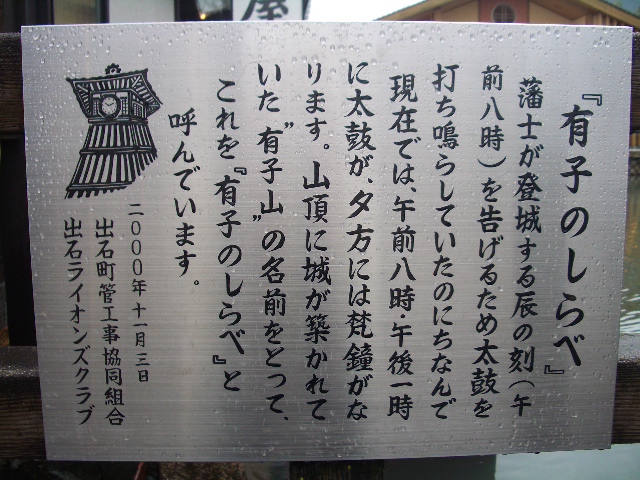 『有子のしらべ』
藩士が登城する辰の刻(午
前八時)を告げるため太鼓を
打ち鳴らしていたのにちなんで
現在では、午前八時・午後一時
に太鼓が、夕方には梵鐘がな
ります。山頂に城が築かれて
いた"有子山"の名前をとって、
これを『有子のしらべ』と
呼んでいます。
二〇〇〇年十一月三日
出石町管工事協同組合
出石ライオンズクラブ